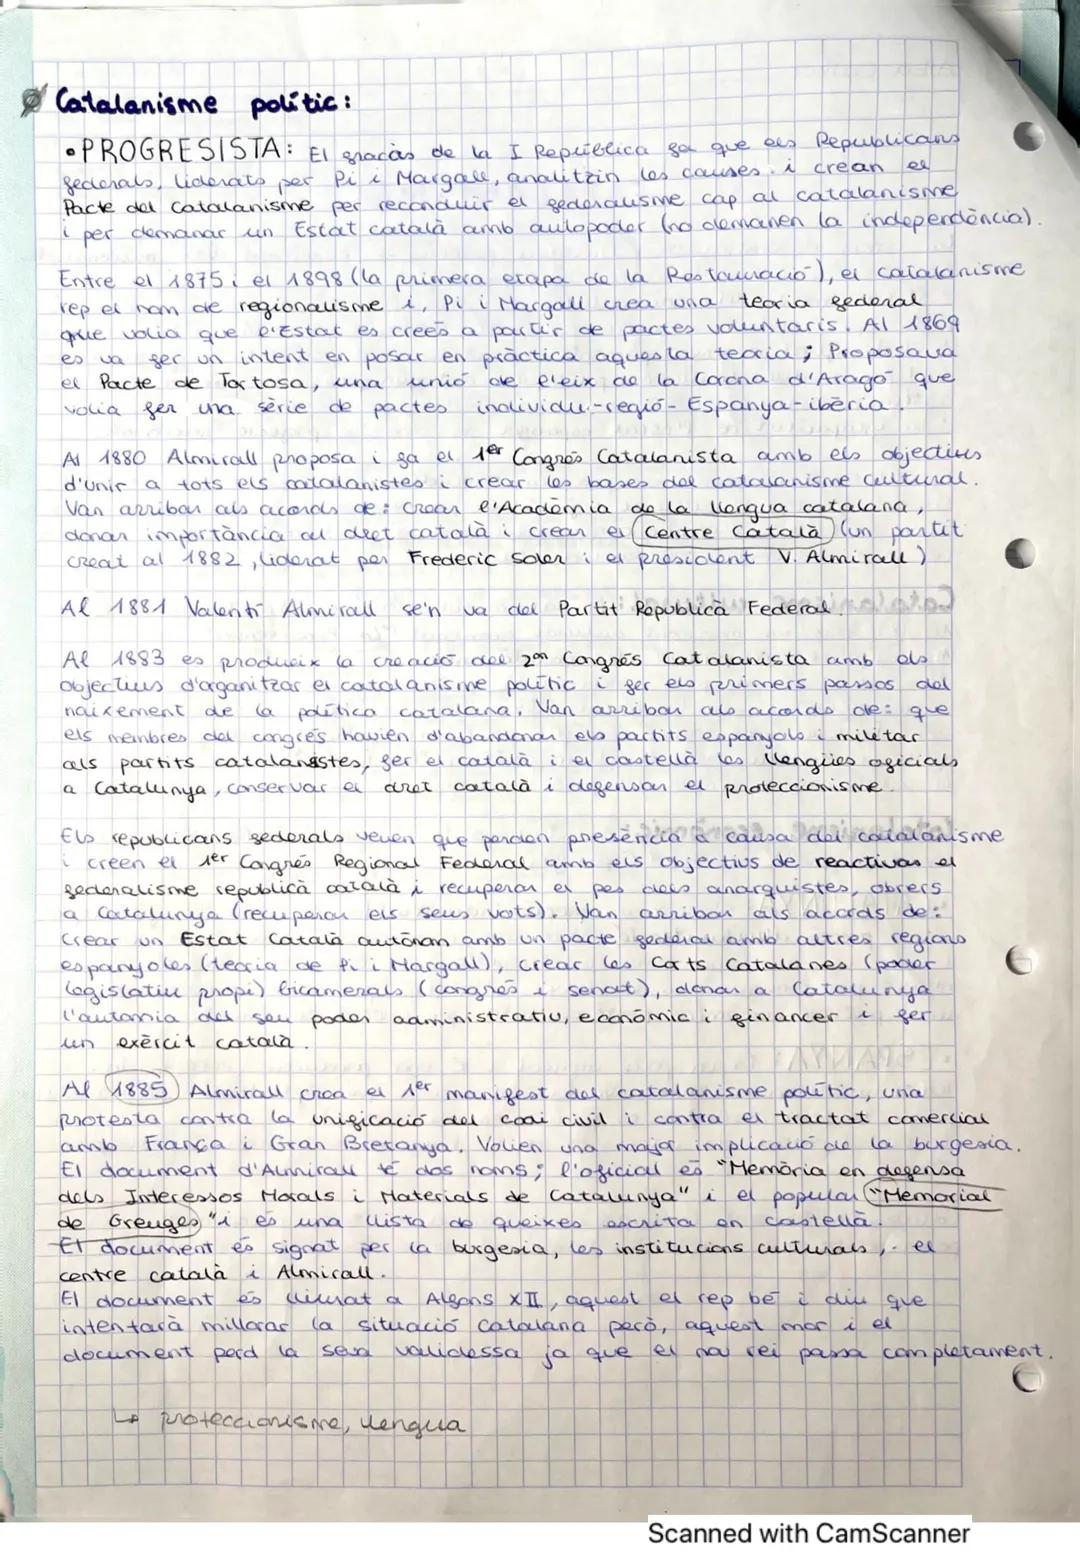 Catalanisme polític:
• PROGRESISTA: El gracàs de la I República fa que els Republicans
federals, liderats per Pi i Margall, analitzin les causes i crean el
Pacte del catalanisme per reconduir el federalisme cap al catalanisme
i per demanar un Estat català amb autopoder (no demanen la independència).
Entre el 1875 i el 1898 (la primera etapa de la Restauració), el catalanisme
rep el nom de regionalisme i, Pi i Margall crea una teoria federal
que volia que l'Estat es creés a partir de pactes voluntaris. Al 1869
es va fer un intent en posar en pràctica aquesta teoria; Proposava
el Pacte de Tortosa, una unió de l'eix de la Corona d'Aragó que
volia fer una sèrie de pactes individu-regió-Espanya-ibèria.
Al 1880 Almirall proposa i fa el 1er Congrés Catalanista amb els objectius
d'unir a tots els catalanistes i crear les bases del catalanisme cultural.
Van arribar als acords de: crear l'Acadèmia de la llengua catalana,
donar importància al dret català i crear el Centre Català (un partit
creat al 1882, liderat per Frederic Soler i el president V. Almirall)
Al 1881 Valentí Almirall se'n va del Partit Republicà Federal.
Al 1883 es produeix la creació del 2on Congrés Catalanista amb els
objectius d'organitzar el catalanisme polític i fer els primers passos del
naixement de la política catalana. Van arribar als acords de: que
els membres del congrés havien d'abandonar els partits espanyols i militar
als partits catalanistes, fer el català i el castellà les llengües oficials
a Catalunya, conservar el dret català i defensar el proteccionisme.
Els republicans federals veuen que perden presència a causa del catalanisme
i creen el 1er Congrés Regional Federal amb els objectius de reactivar el
federalisme republicà català i recuperar el pes dels anarquistes, obrers
a Catalunya (recuperar els seus vots). Van arribar als acords de:
Crear un Estat Català autònom amb un pacte federal amb altres regions
espanyoles (teoria de Pi i Margall), crear les Corts Catalanes (poder
legislatiu propi) bicamerals (congrés i senat), donar a Catalunya
l'autonomia del seu poder administratiu, econòmic i financer i fer
un exèrcit català.
Al 1885 Almirall crea el 1er manifest del catalanisme polític, una
protesta contra la unificació del codi civil i contra el tractat comercial
amb França i Gran Bretanya. Volien una major implicació de la burgesia.
El document d'Almirall té dos noms; l'oficial és "Memòria en defensa
dels Interessos Morals i Materials de Catalunya" i el popular "Memorial
de Greuges" i és una llista de queixes escrita en castellà.
El document és signat per la burgesia, les institucions culturals, el
centre català i Almirall.
El document és lliurat a Alfons XII, aquest el rep bé i diu que
intentarà millorar la situació catalana però, aquest mor i el
document perd la seva validessa ja que el nou rei passa completament.
↳ proteccionisme, llengua
Scanned with CamScanner